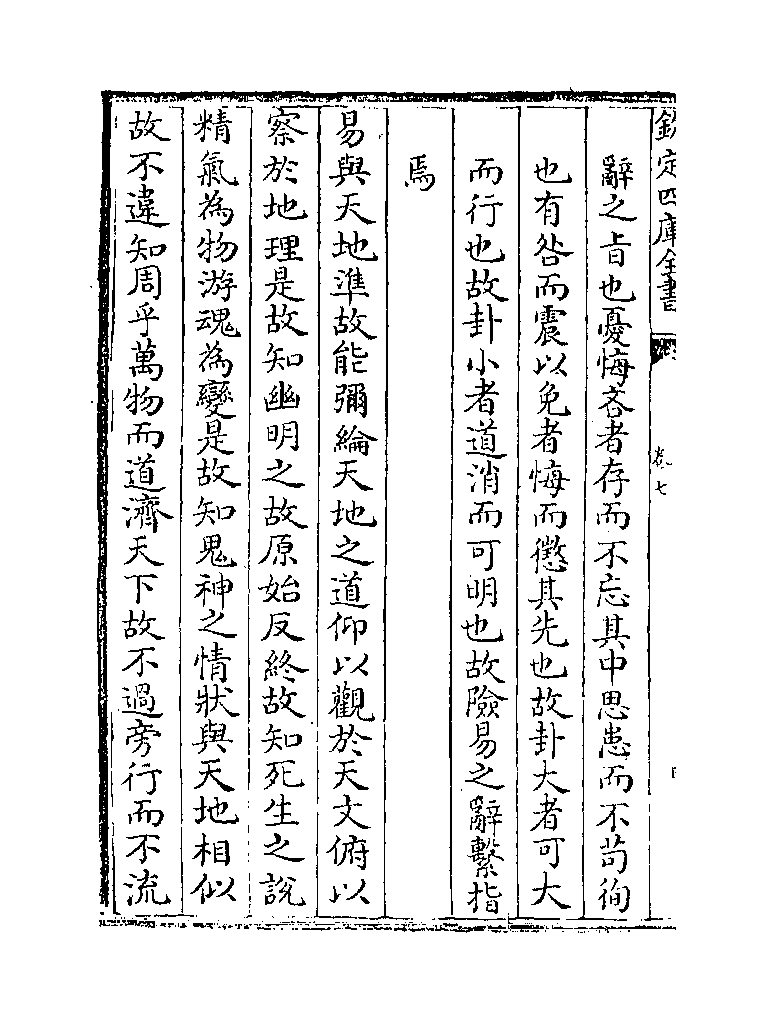 欽定四庫全書
卷七
辭之㫖也憂悔吝者存而不忘其中思患而不茍徇
也有咎而震以免者悔而懲其先也故卦大者可大
而行也故卦小者道消而可明也故險易之辭繫指
焉
易與天地準故能彌綸天地之道仰以觀於天文俯以
察於地理是故知幽明之故原始反終故知死生之說
精氣為物游魂為變是故知鬼神之情狀與天地相似
故不違知周乎萬物而道濟天下故不過旁行而不流